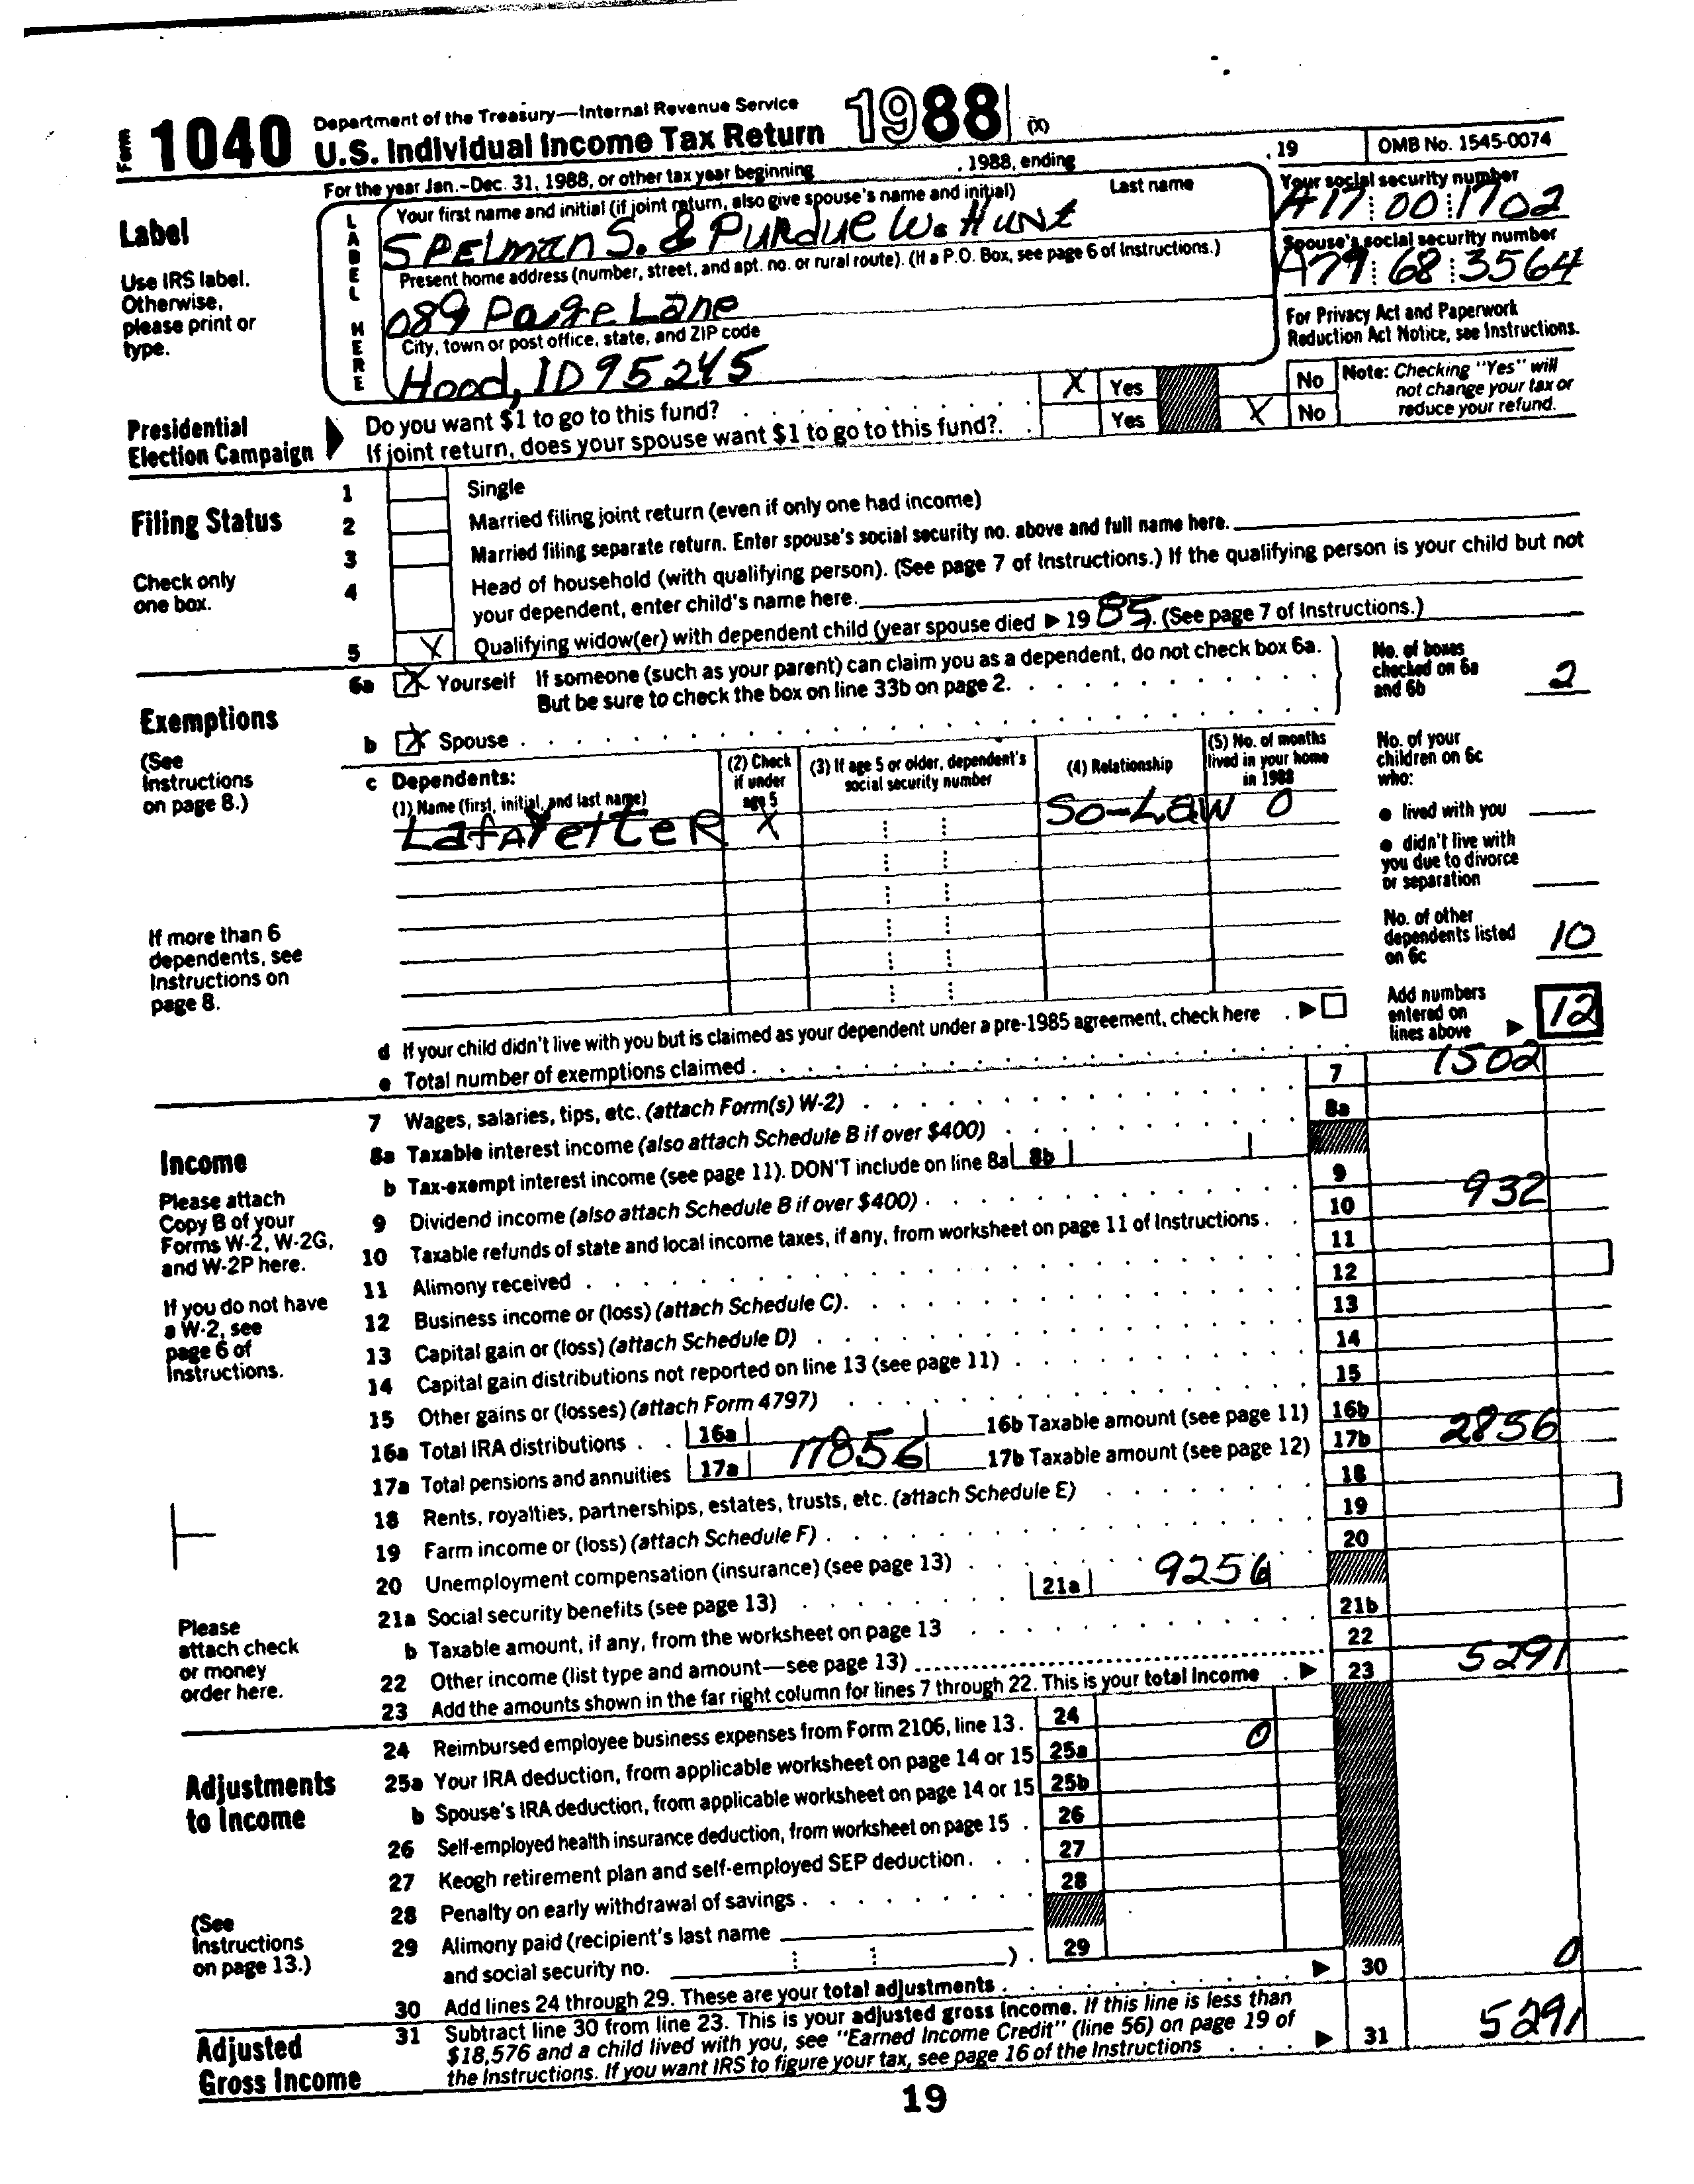 Form 1040 Department of the Treasury—Internal Revenue Service
U.S. Individual Income Tax Return 1988 (X)
For the year Jan.–Dec. 31, 1988, or other tax year beginning , 1988, ending , 19 OMB No. 1545-0074
Label
Use IRS label.
Otherwise,
please print or
type.
LABEL HERE
Your first name and initial (if joint return, also give spouse's name and initial) Last name
SPELMAN S. & PURDUE W. HUNt
Your social security number
A17 00 1702
Present home address (number, street, and apt. no. or rural route). (If a P.O. Box, see page 6 of Instructions.)
089 Page Lane
Spouse's social security number
A79 68 3564
City, town or post office, state, and ZIP code
Hood, ID 95245
For Privacy Act and Paperwork
Reduction Act Notice, see Instructions.
Presidential
Election Campaign
Do you want $1 to go to this fund? . . . . . . . . . . X Yes No
If joint return, does your spouse want $1 to go to this fund? . . Yes X No
Note: Checking "Yes" will
not change your tax or
reduce your refund.
Filing Status
Check only
one box.
1 Single
2 Married filing joint return (even if only one had income)
3 Married filing separate return. Enter spouse's social security no. above and full name here.
4 Head of household (with qualifying person). (See page 7 of Instructions.) If the qualifying person is your child but not
your dependent, enter child's name here.
5 X Qualifying widow(er) with dependent child (year spouse died ▶ 19 85). (See page 7 of Instructions.)
Exemptions
(See
Instructions
on page 8.)
6a X Yourself If someone (such as your parent) can claim you as a dependent, do not check box 6a.
But be sure to check the box on line 33b on page 2. . . . . . . . . . . .
b X Spouse . . . . . . . . . . . . . . . . . . . .
No. of boxes
checked on 6a
and 6b 2
c Dependents:
(1) Name (first, initial, and last name)
(2) Check
if under
age 5
(3) If age 5 or older, dependent's
social security number
(4) Relationship
(5) No. of months
lived in your home
in 1988
LafAYetteR X So-Law 0
No. of your
children on 6c
who:
● lived with you
● didn't live with
you due to divorce
or separation
No. of other
dependents listed
on 6c 10
If more than 6
dependents, see
Instructions on
page 8.
d If your child didn't live with you but is claimed as your dependent under a pre-1985 agreement, check here . ▶
e Total number of exemptions claimed . . . . . . . . . . . . . . .
Add numbers
entered on
lines above ▶ 12
Income
Please attach
Copy B of your
Forms W-2, W-2G,
and W-2P here.
If you do not have
a W-2, see
page 6 of
Instructions.
Please
attach check
or money
order here.
7 Wages, salaries, tips, etc. (attach Form(s) W-2) . . . . . . . . . . . . 7 1502
8a Taxable interest income (also attach Schedule B if over $400) . . . . . . . . . 8a
b Tax-exempt interest income (see page 11). DON'T include on line 8a 8b
9 Dividend income (also attach Schedule B if over $400) . . . . . . . . . . . 9
10 Taxable refunds of state and local income taxes, if any, from worksheet on page 11 of Instructions . . 10 932
11 Alimony received . . . . . . . . . . . . . . . . . . . 11
12 Business income or (loss) (attach Schedule C). . . . . . . . . . . . . 12
13 Capital gain or (loss) (attach Schedule D) . . . . . . . . . . . . . 13
14 Capital gain distributions not reported on line 13 (see page 11) . . . . . . . . 14
15 Other gains or (losses) (attach Form 4797) . . . . . . . . . . . . . 15
16a Total IRA distributions . . 16a 16b Taxable amount (see page 11) 16b
17a Total pensions and annuities 17a 17856 17b Taxable amount (see page 12) 17b 2856
18 Rents, royalties, partnerships, estates, trusts, etc. (attach Schedule E) . . . . . . . 18
19 Farm income or (loss) (attach Schedule F) . . . . . . . . . . . . . 19
20 Unemployment compensation (insurance) (see page 13) . . . . . . . . . . 20
21a Social security benefits (see page 13) . . . . . . . 21a 9256
b Taxable amount, if any, from the worksheet on page 13 . . . . . . . . . . 21b
22 Other income (list type and amount—see page 13) 22
23 Add the amounts shown in the far right column for lines 7 through 22. This is your total income . ▶ 23 5291
Adjustments
to Income
(See
Instructions
on page 13.)
24 Reimbursed employee business expenses from Form 2106, line 13 . 24 0
25a Your IRA deduction, from applicable worksheet on page 14 or 15 25a
b Spouse's IRA deduction, from applicable worksheet on page 14 or 15 25b
26 Self-employed health insurance deduction, from worksheet on page 15 . 26
27 Keogh retirement plan and self-employed SEP deduction . . . 27
28 Penalty on early withdrawal of savings . . . . . . . . 28
29 Alimony paid (recipient's last name
and social security no. ) . 29
30 Add lines 24 through 29. These are your total adjustments . . . . . . . . . ▶ 30 0
Adjusted
Gross Income
31 Subtract line 30 from line 23. This is your adjusted gross income. If this line is less than
$18,576 and a child lived with you, see "Earned Income Credit" (line 56) on page 19 of
the Instructions. If you want IRS to figure your tax, see page 16 of the Instructions . . . ▶ 31 5291
19